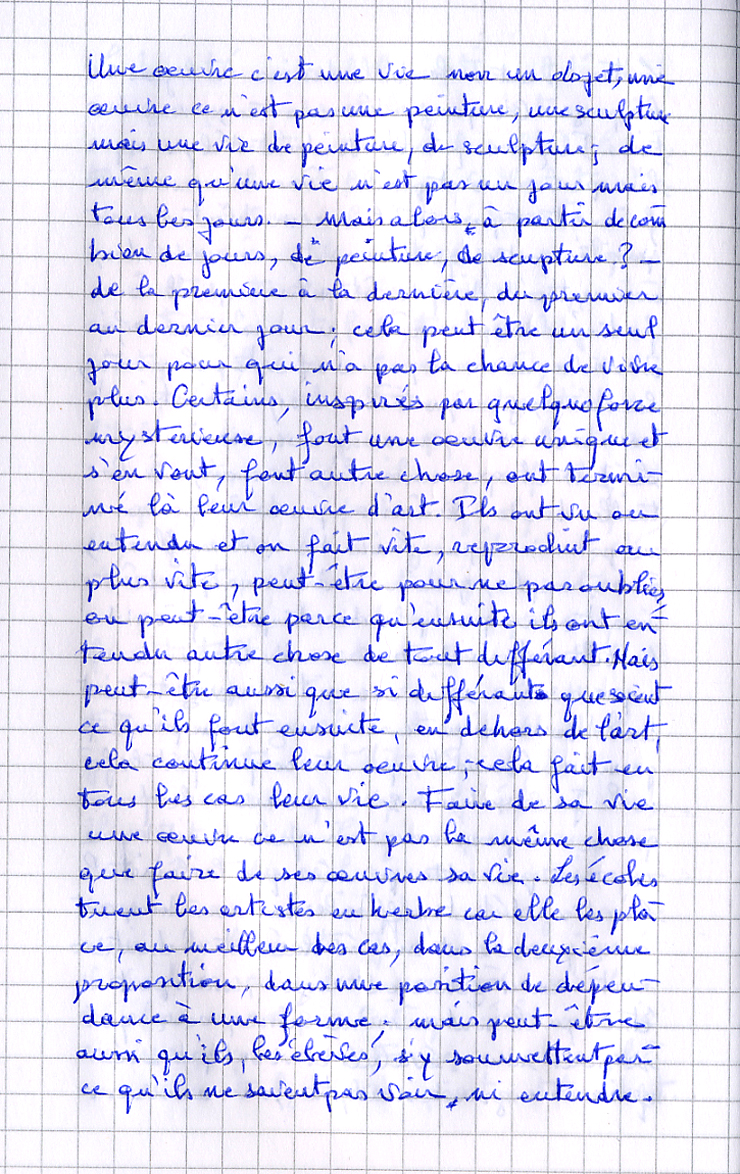 Une œuvre c'est une vie non un objet, une
œuvre ce n'est pas une peinture, une sculpture
mais une vie de peinture, de sculpture; de
même qu'une vie n'est pas un jour mais
tous les jours. – Mais alors, à partir de com
bien de jours, de peinture, de scupture ? –
de la première à la dernière, du premier
au dernier jour ; cela peut être un seul
jour pour qui n'a pas la chance de vivre
plus. Certains, inspirés par quelque force
mysterieuse, font une œuvre unique et
s'en vont, font autre chose, ont termi-
né là leur œuvre d'art. Ils ont vu ou
entendu et on fait vite, reproduit au
plus vite, peut-être pour ne pas oublier,
ou peut-être parce qu'ensuite ils ont en-
tendu autre chose de tout différant. Mais
peut-être aussi que si différants que soient
ce qu'ils font ensuite, en dehors de l'art,
cela continue leur œuvre, cela fait en
tous les cas leur vie. Faire de sa vie
une œuvre ce n'est pas la même chose
que faire de ses œuvres sa vie. Les écoles
tuent les artistes en herbe car elle les pla
ce, au meilleur des cas, dans la deuxième
proposition, dans une position de dépen-
dance à une forme, mais peut-être
aussi qu'ils, les élèves, s'y soumettent par-
ce qu'ils ne savent pas voir, ni entendre.